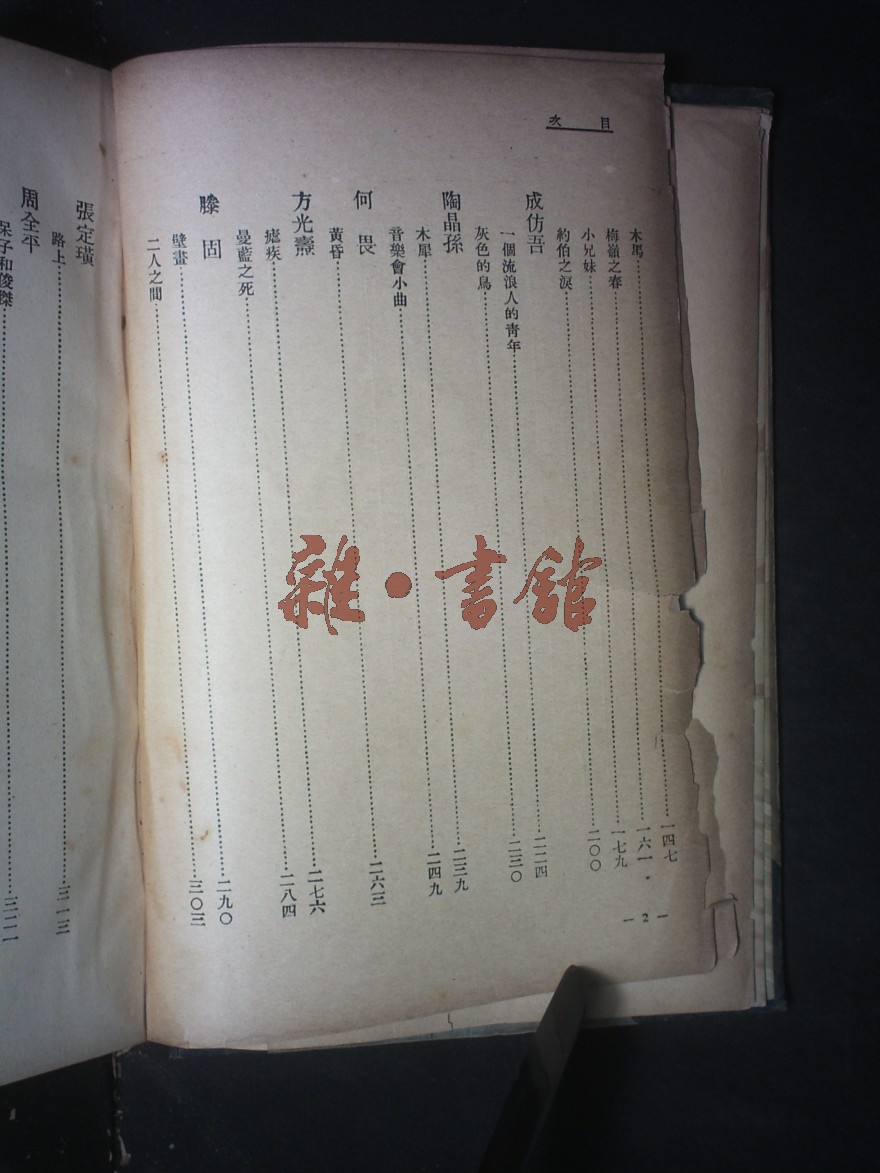 目次
木馬……一四七
梅嶺之春……一六一
小兄妹……一七九
約伯之淚……二〇〇
成仿吾
一個流浪人的青年……二二四
灰色的鳥……二三〇
陶晶孫
木犀……二三九
音樂會小曲……二四九
何畏
黃昏……二六三
方光燾
瘧疾……二七六
曼藍之死……二八四
滕固
壁畫……二九〇
二人之間……三〇三
— 2 —
張定璜
路上……三一三
周全平
呆子和俊傑……
雜·書館